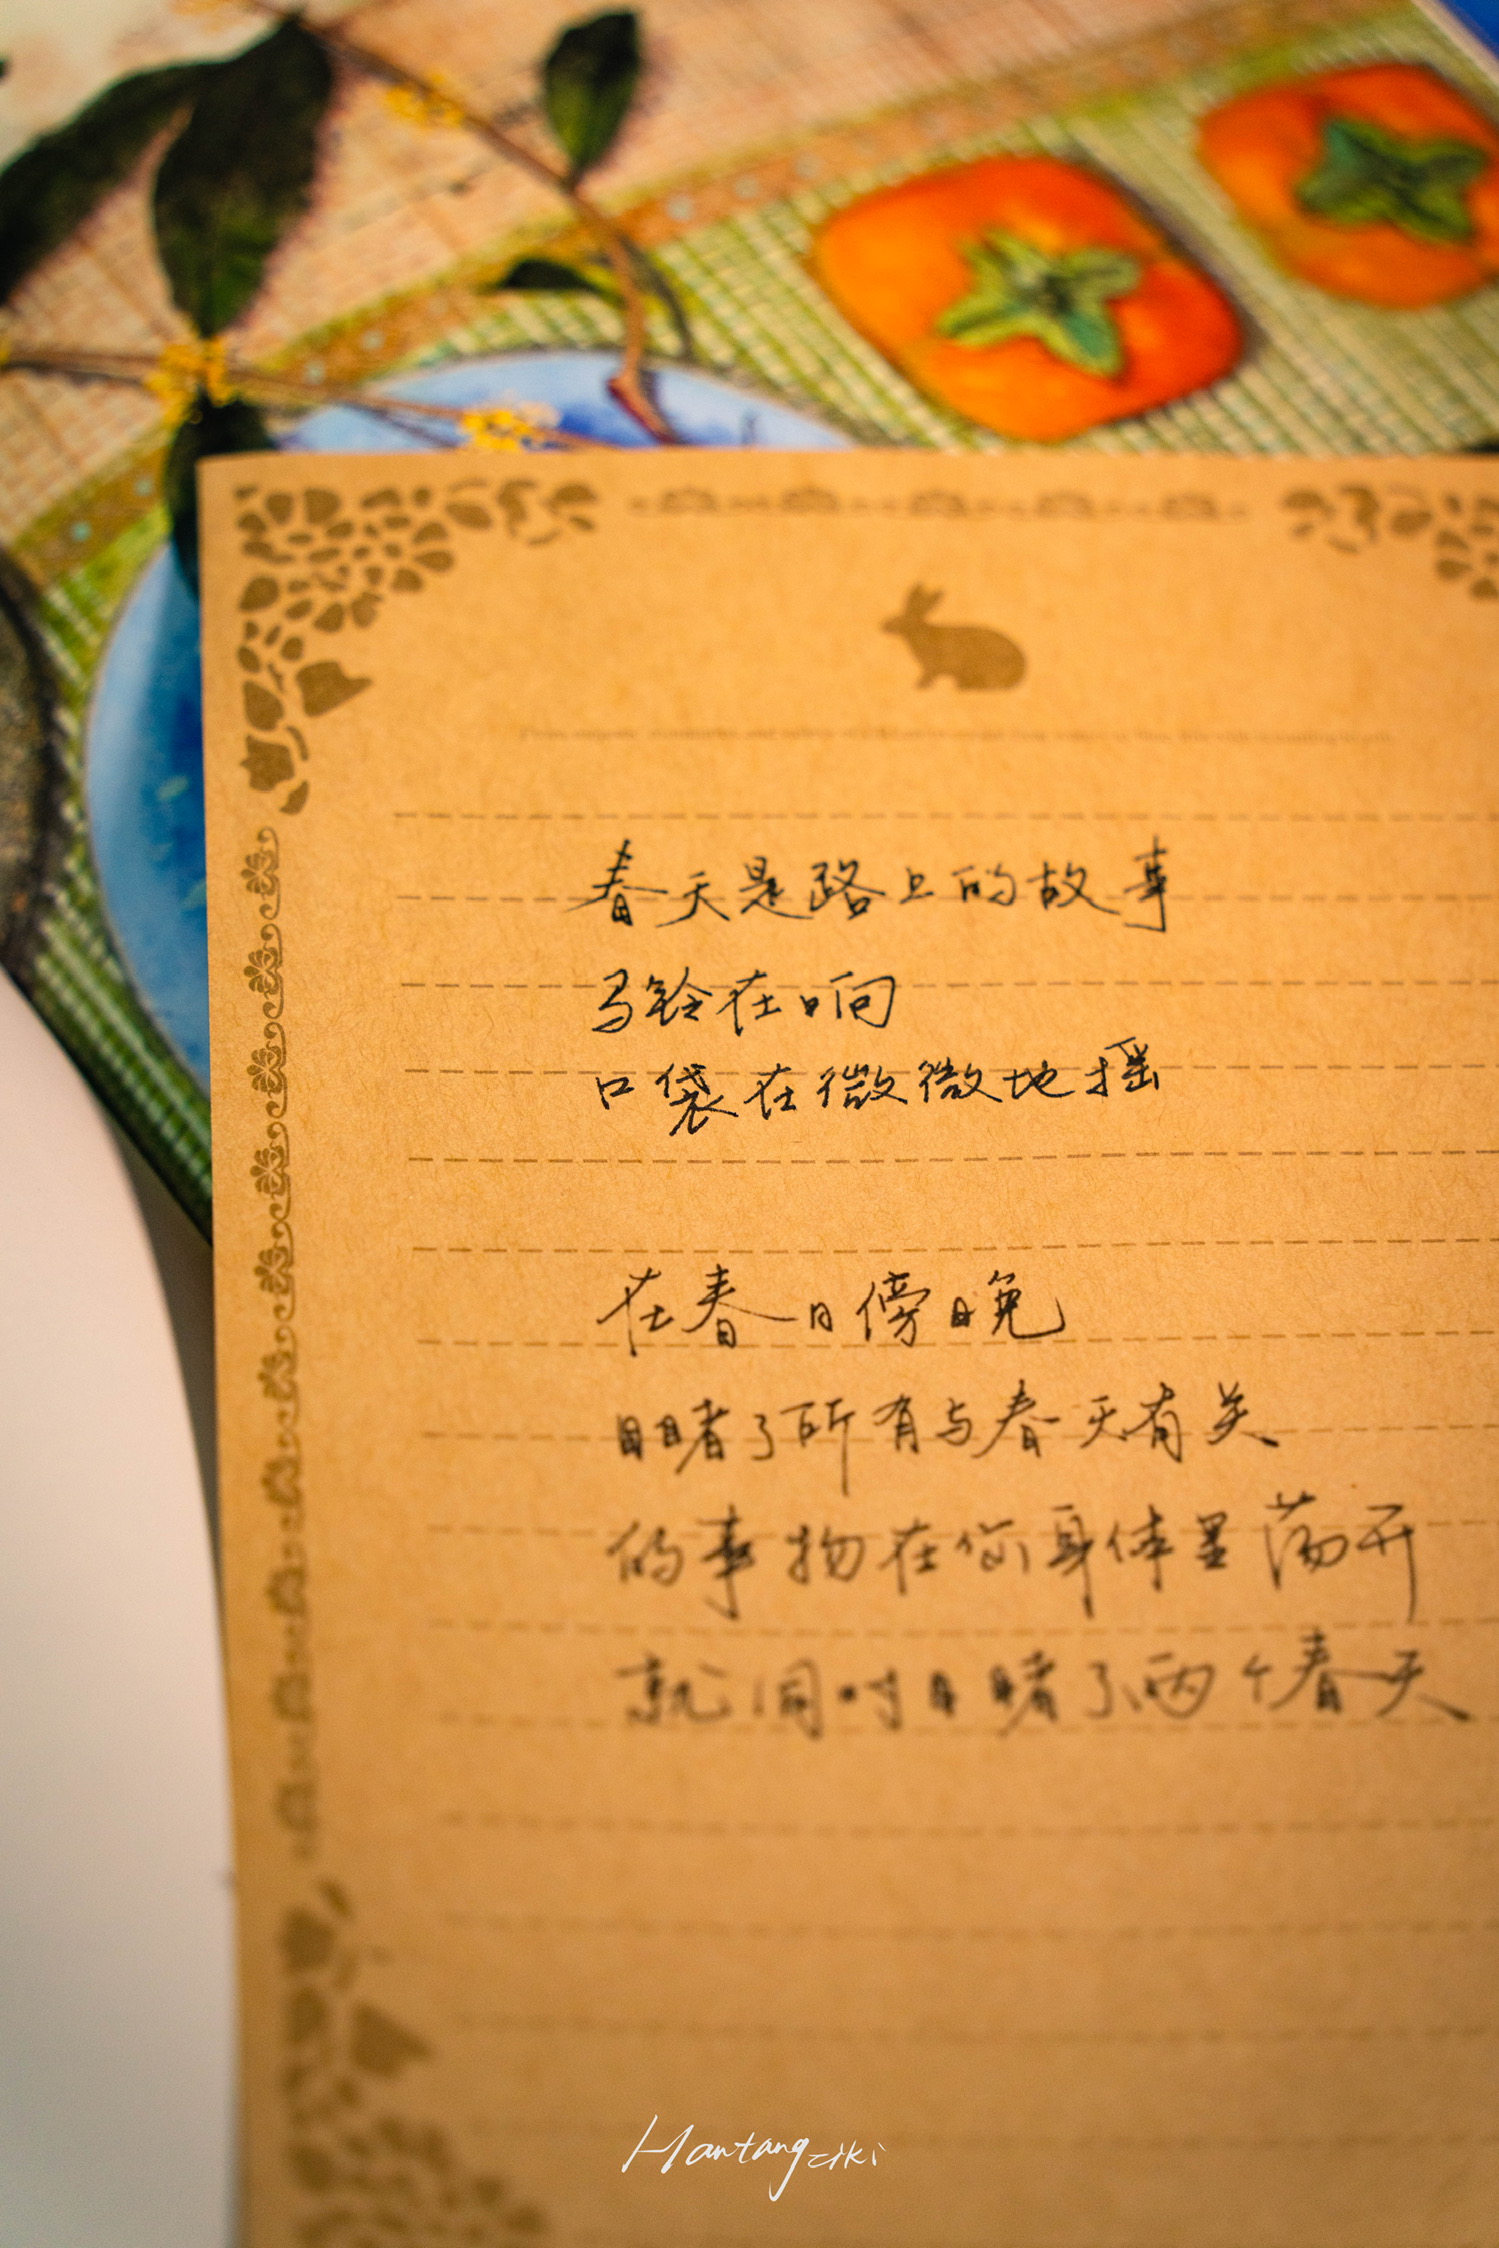 春天是路上的故事
马铃在响
口袋在微微地摇
在春日傍晚
目睹了所有与春天有关
的事物在你身体里荡开
就同时目睹了两个春天
Hantang ziki